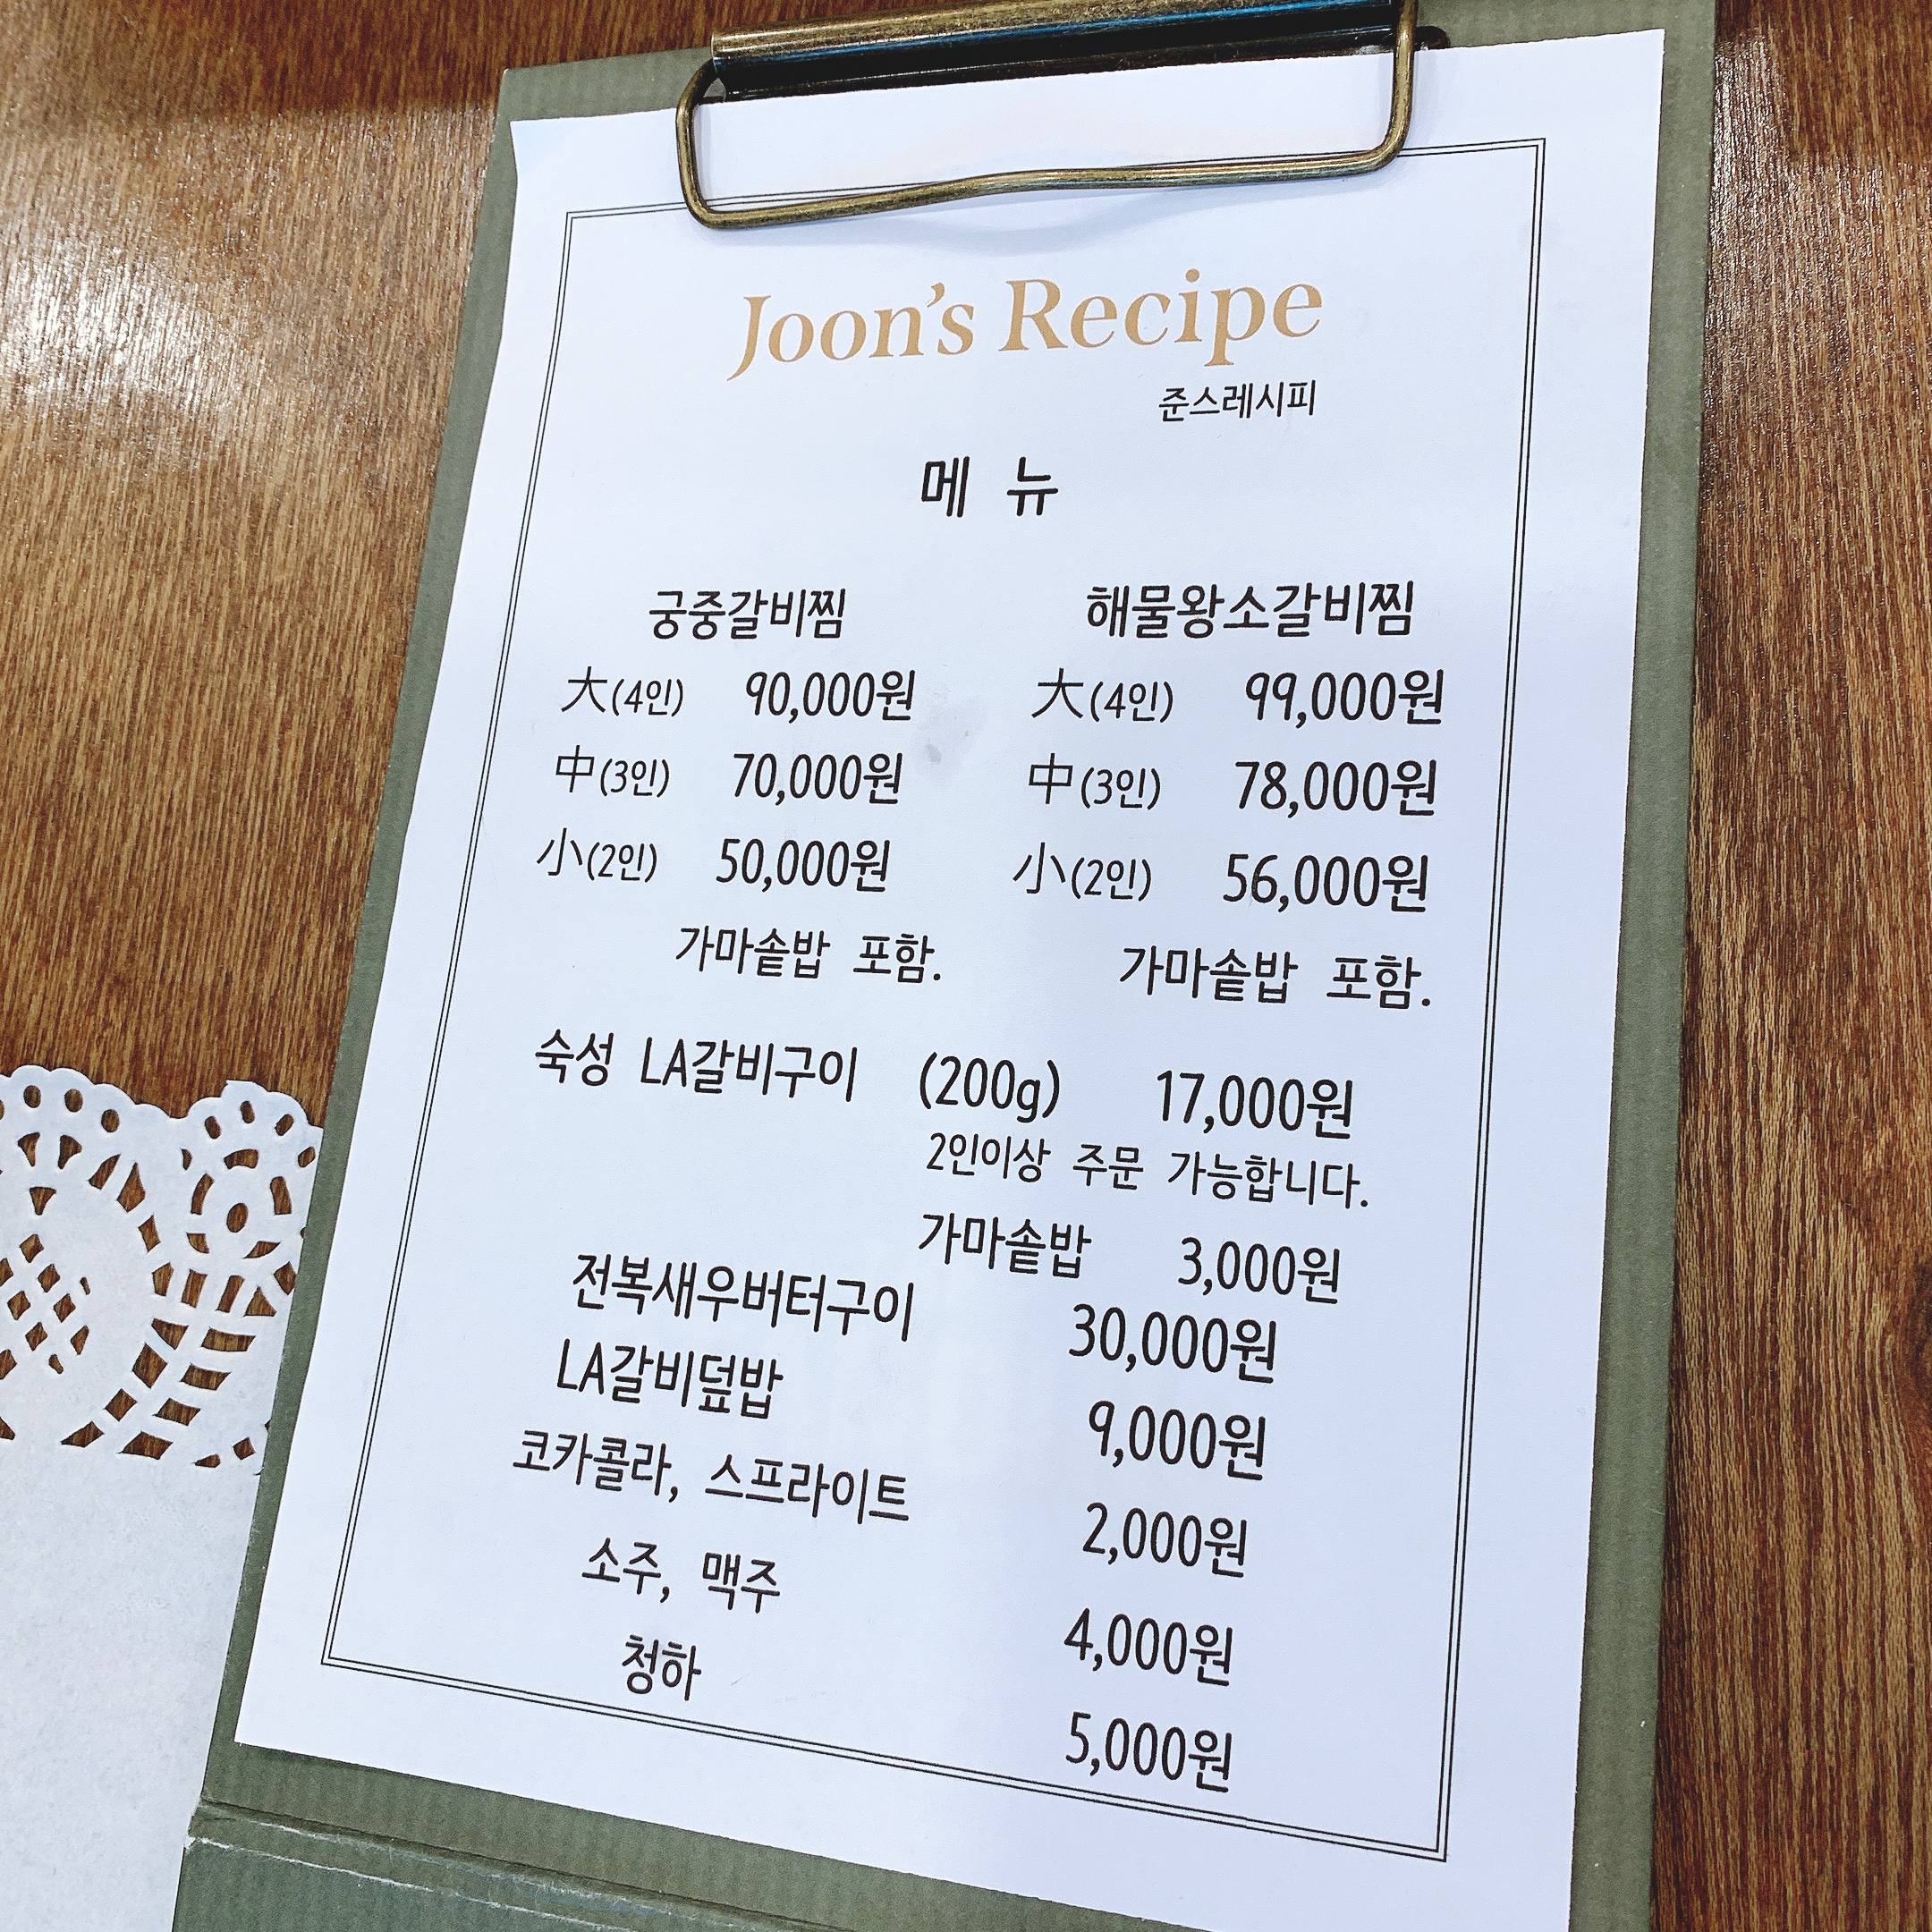 Joon's Recipe
준스레시피
메 뉴
궁중갈비찜
大(4인) 90,000원
中(3인) 70,000원
小(2인) 50,000원
가마솥밥 포함.
해물왕소갈비찜
大(4인) 99,000원
中(3인) 78,000원
小(2인) 56,000원
가마솥밥 포함.
숙성 LA갈비구이 (200g) 17,000원
2인이상 주문 가능합니다.
가마솥밥 3,000원
전복새우버터구이 30,000원
LA갈비덮밥 9,000원
코카콜라, 스프라이트 2,000원
소주, 맥주 4,000원
청하 5,000원